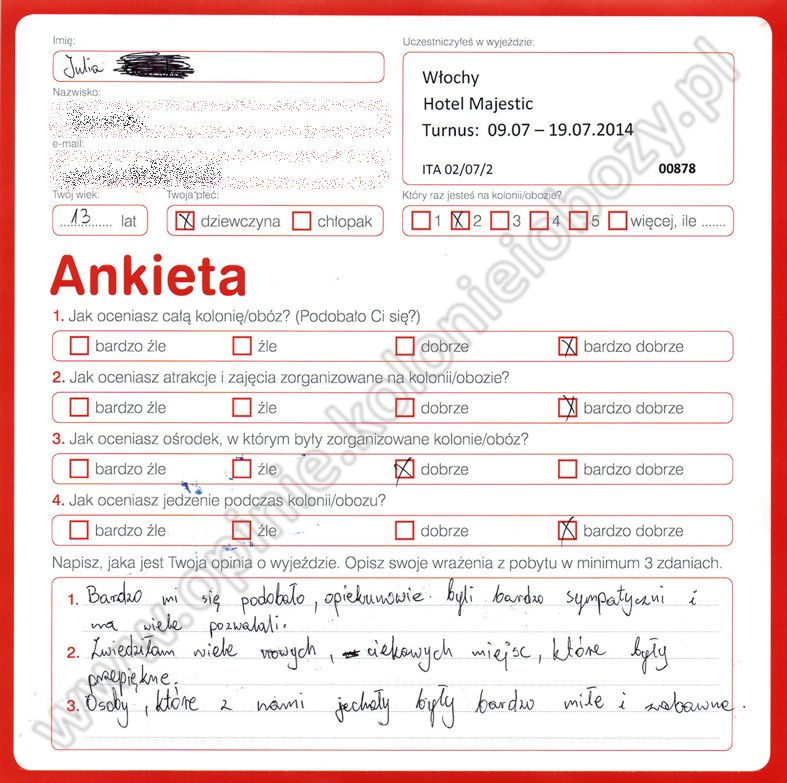 Imię:
Julia
Nazwisko:
e-mail:
Twój wiek:
13 lat
Twoja płeć:
dziewczyna chłopak
Uczestniczyłeś w wyjeździe:
Włochy
Hotel Majestic
Turnus: 09.07 – 19.07.2014
ITA 02/07/2 00878
Który raz jesteś na kolonii/obozie?
1 2 3 4 5 więcej, ile .......
Ankieta
1. Jak oceniasz całą kolonię/obóz? (Podobało Ci się?)
bardzo źle źle dobrze bardzo dobrze
2. Jak oceniasz atrakcje i zajęcia zorganizowane na kolonii/obozie?
bardzo źle źle dobrze bardzo dobrze
3. Jak oceniasz ośrodek, w którym były zorganizowane kolonie/obóz?
bardzo źle źle dobrze bardzo dobrze
4. Jak oceniasz jedzenie podczas kolonii/obozu?
bardzo źle źle dobrze bardzo dobrze
Napisz, jaka jest Twoja opinia o wyjeździe. Opisz swoje wrażenia z pobytu w minimum 3 zdaniach.
1. Bardzo mi się podobało, opiekunowie. byli bardzo sympatyczni i
na wiele pozwalali.
2. Zwiedziłam wiele nowych, ciekawych miejsc, które były
przepiękne.
3. Osoby, które z nami jechały były bardzo miłe i zabawne.
www.opinie.kolonieiobozy.pl